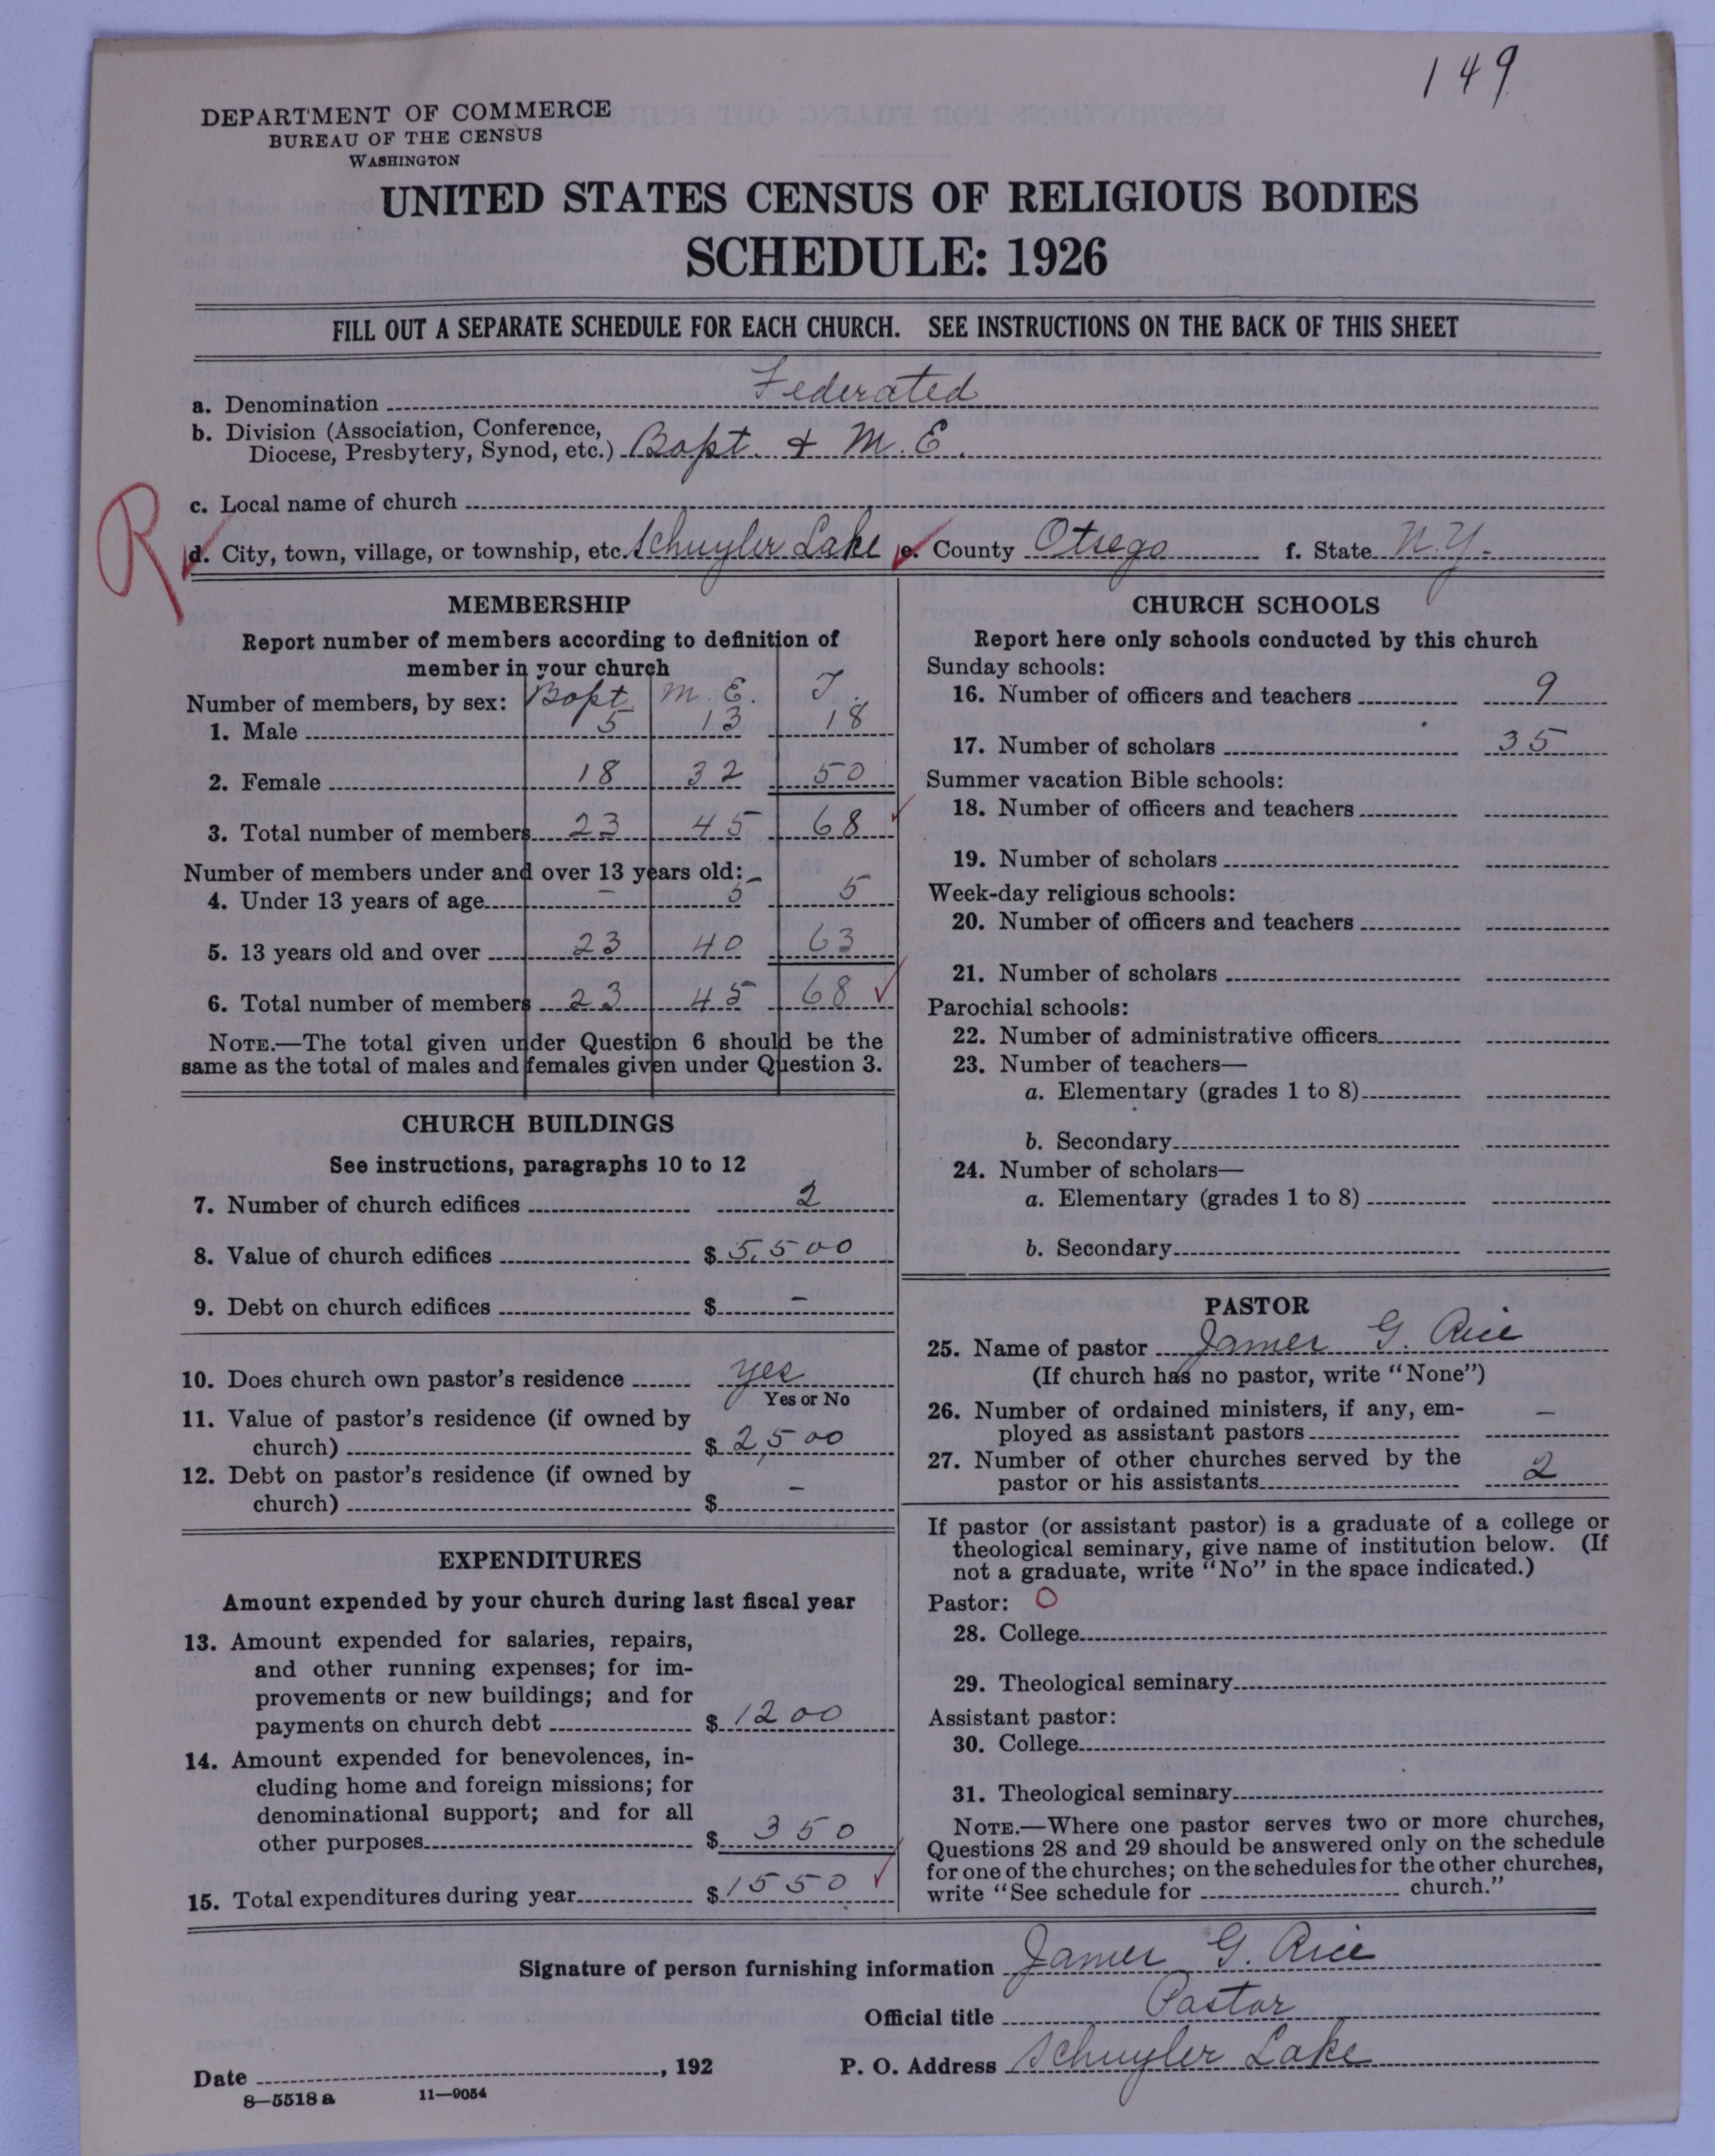 149
DEPARTMENT OF COMMERCE
BUREAU OF THE CENSUS
WASHINGTON
UNITED STATES CENSUS OF RELIGIOUS BODIES
SCHEDULE: 1926
FILL OUT A SEPARATE SCHEDULE FOR EACH CHURCH. SEE INSTRUCTIONS ON THE BACK OF THIS SHEET
a. Denomination Federated
b. Division (Association, Conference,
Diocese, Presbytery, Synod, etc.) Bapt. & M. E.
c. Local name of church
R
d. City, town, village, or township, etc. Schuyler Lake e. County Otsego f. State N.Y.
MEMBERSHIP
Report number of members according to definition of
member in your church
Number of members, by sex: Bapt M. E. T.
1. Male 5 13 18
2. Female 18 32 50
3. Total number of members 23 45 68 ✓
Number of members under and over 13 years old:
4. Under 13 years of age – 5 5
5. 13 years old and over 23 40 63
6. Total number of members 23 45 68 ✓
NOTE.—The total given under Question 6 should be the
same as the total of males and females given under Question 3.
CHURCH BUILDINGS
See instructions, paragraphs 10 to 12
7. Number of church edifices 2
8. Value of church edifices $ 5,500
9. Debt on church edifices $ –
10. Does church own pastor's residence yes
Yes or No
11. Value of pastor's residence (if owned by
church) $ 2,500
12. Debt on pastor's residence (if owned by
church) $ –
EXPENDITURES
Amount expended by your church during last fiscal year
13. Amount expended for salaries, repairs,
and other running expenses; for im-
provements or new buildings; and for
payments on church debt $ 1200
14. Amount expended for benevolences, in-
cluding home and foreign missions; for
denominational support; and for all
other purposes $ 350
15. Total expenditures during year $ 1550 ✓
CHURCH SCHOOLS
Report here only schools conducted by this church
Sunday schools:
16. Number of officers and teachers 9
17. Number of scholars 35
Summer vacation Bible schools:
18. Number of officers and teachers
19. Number of scholars
Week-day religious schools:
20. Number of officers and teachers
21. Number of scholars
Parochial schools:
22. Number of administrative officers
23. Number of teachers—
a. Elementary (grades 1 to 8)
b. Secondary
24. Number of scholars—
a. Elementary (grades 1 to 8)
b. Secondary
PASTOR
25. Name of pastor James G. Rice
(If church has no pastor, write "None")
26. Number of ordained ministers, if any, em-
ployed as assistant pastors –
27. Number of other churches served by the
pastor or his assistants 2
If pastor (or assistant pastor) is a graduate of a college or
theological seminary, give name of institution below. (If
not a graduate, write "No" in the space indicated.)
Pastor: O
28. College
29. Theological seminary
Assistant pastor:
30. College
31. Theological seminary
NOTE.—Where one pastor serves two or more churches,
Questions 28 and 29 should be answered only on the schedule
for one of the churches; on the schedules for the other churches,
write "See schedule for church."
Signature of person furnishing information James G. Rice
Official title Pastor
Date , 192 P. O. Address Schuyler Lake
8—5518 a 11—9054